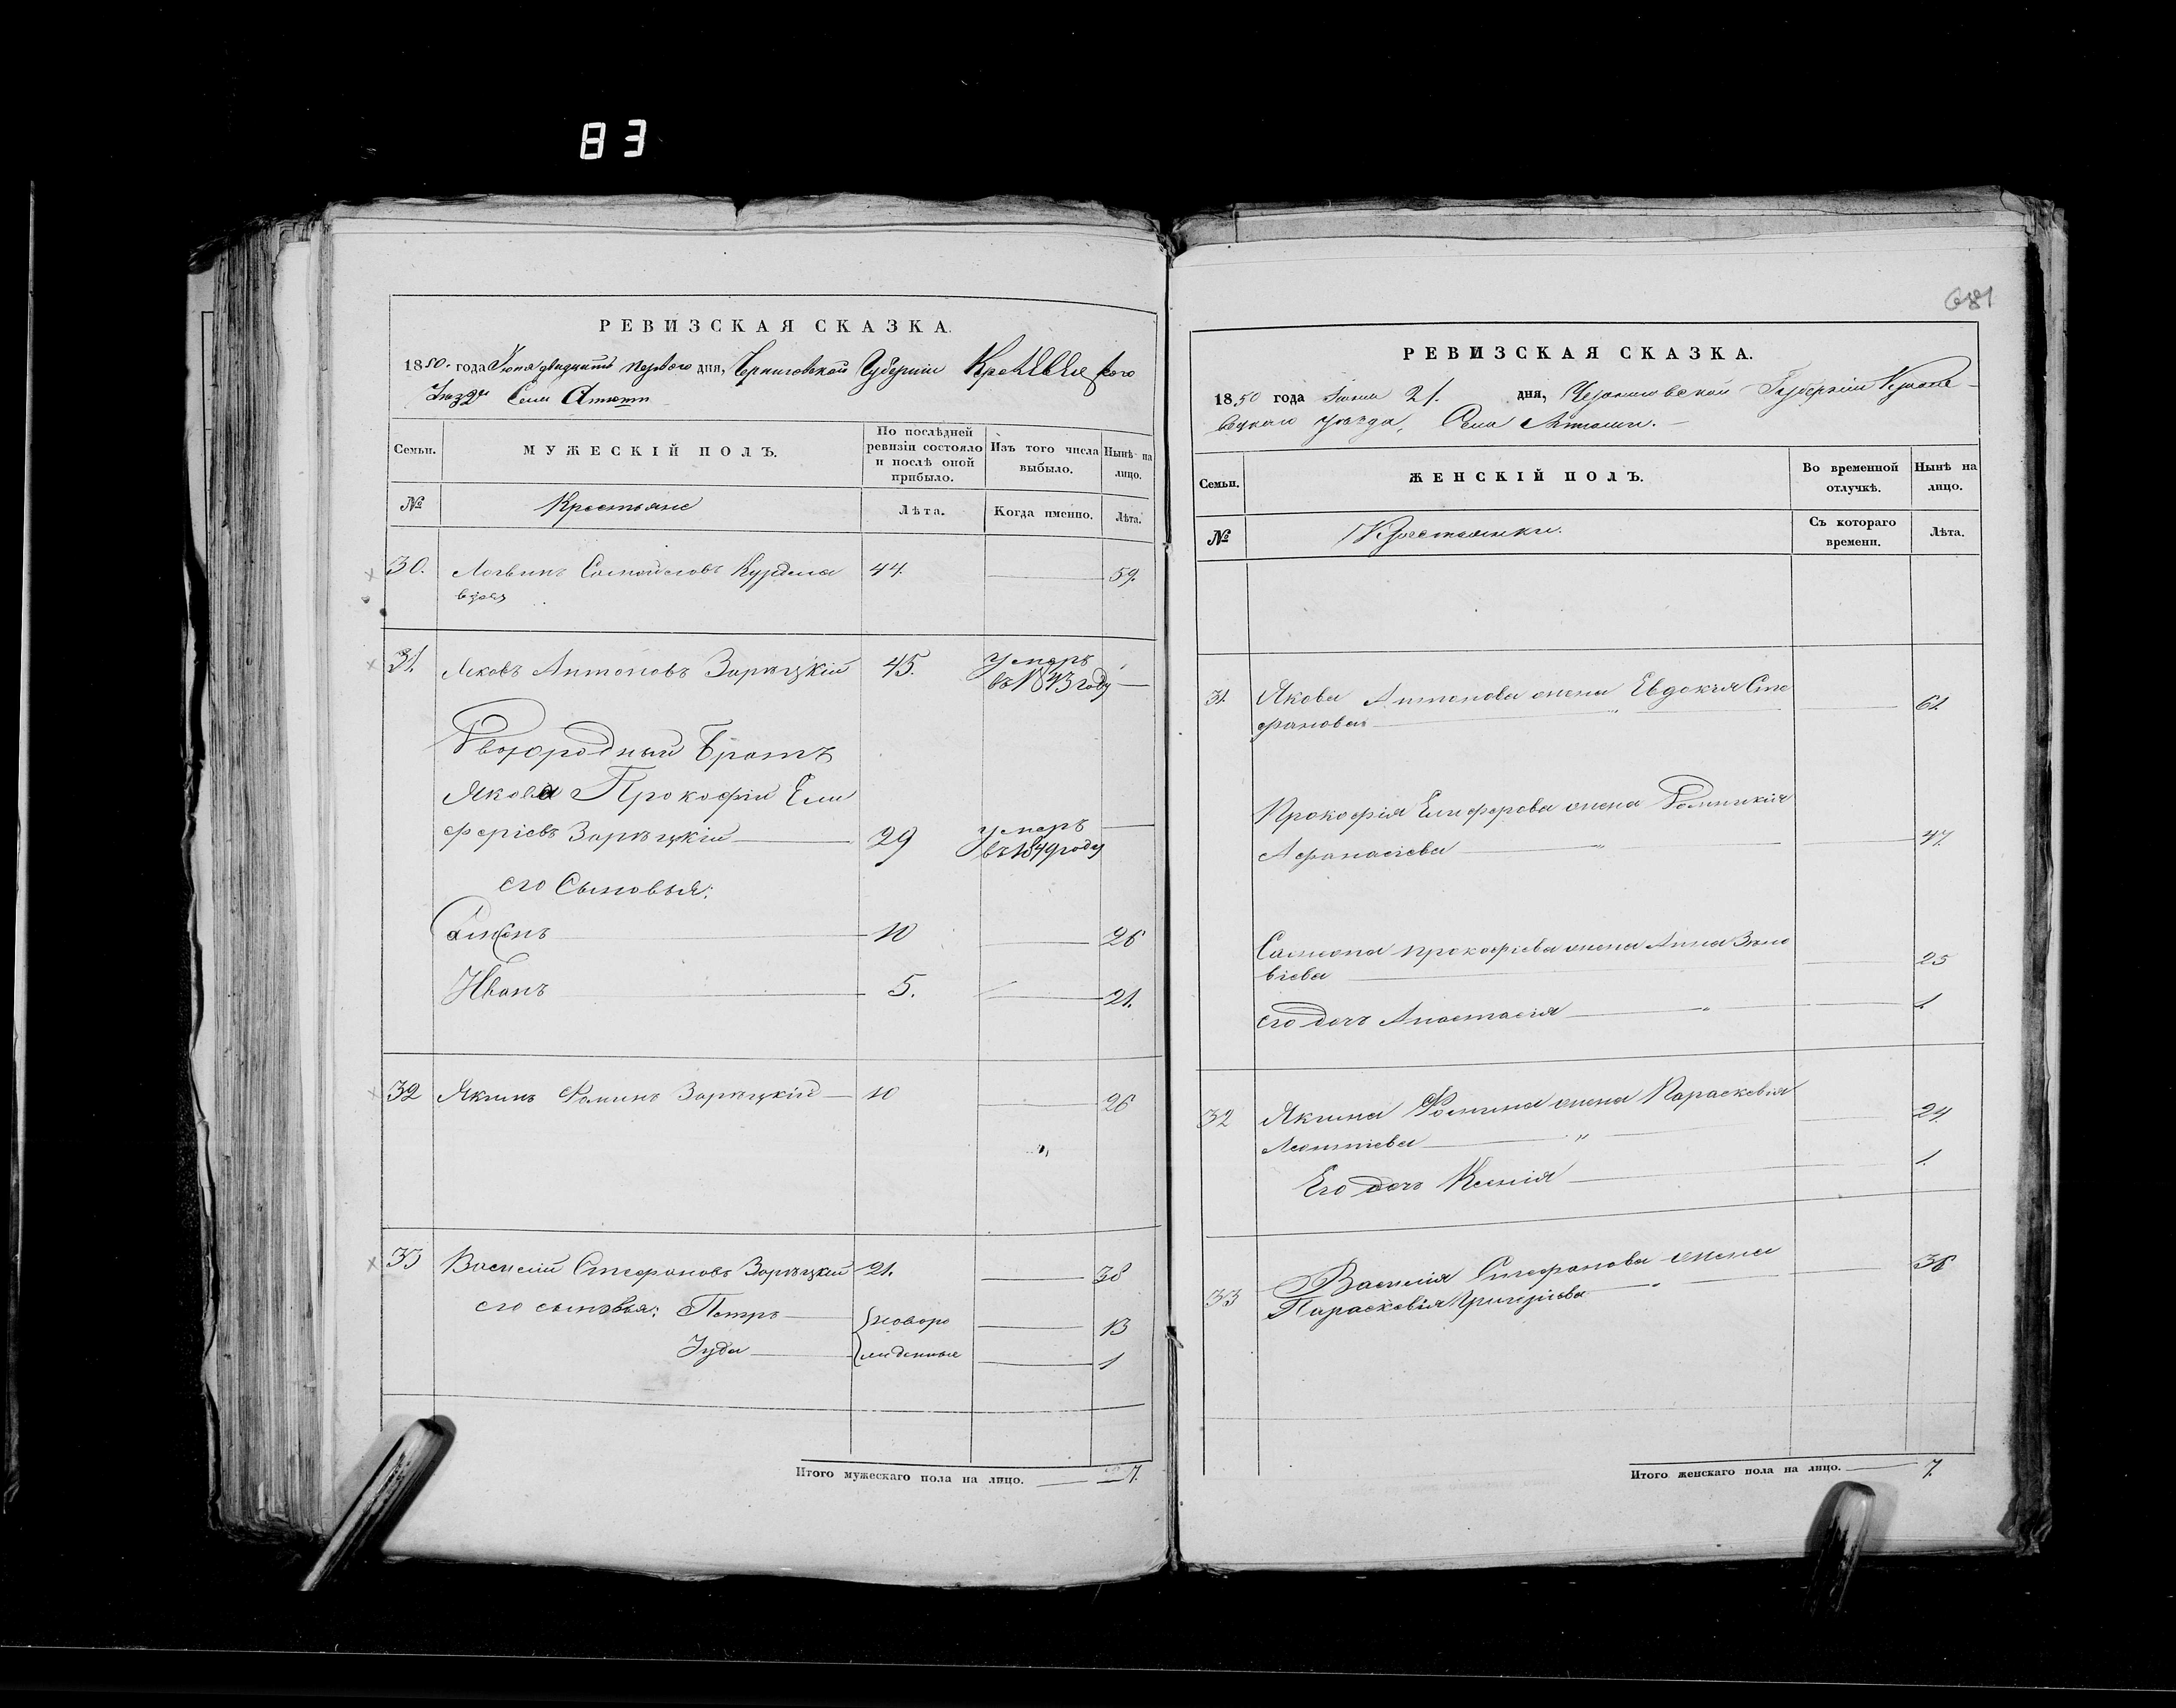 83
РЕВИЗСКАЯ СКАЗКА.
1850. года Іюня двадцать перваго дня, Черниговской Губерніи Кролевецкого
Уезда Села
Семьи.
МУЖЕСКІЙ ПОЛЪ.
По послѣдней ревизіи состояло и послѣ оной прибыло.
Изъ того числа выбыло.
Нынѣ на лицо.
№
Крестьяне
Лѣта.
Когда именно.
Лѣта.
30. Логвинъ Самойловъ 44. 59.
31. Яковъ Антоновъ Зарѣцкій 45. умеръ
въ 1843 году
Двоюродный Братъ
Якова Прокофій Ели
феріевъ Зарѣцкій 29 умеръ
въ 1849 году
его Сыновья:
Самсонъ 10 26
Иванъ 5. 21.
32 Якимъ Фоминъ Зарѣцкій 10 26
33 Василий Стефановъ Зарѣцкий 21. 38
его сыновья: Петръ новоро 13
Іуда жденные 1
Итого мужескаго пола на лицо. 7.
681
РЕВИЗСКАЯ СКАЗКА.
1850 года Іюня 21. дня, Черниговской Губерніи Кроле-
вецкаго уѣзда, Села
Семьи.
ЖЕНСКІЙ ПОЛЪ.
Во временной отлучкѣ.
Нынѣ на лицо.
№
Крестьянки.
Съ котораго времени.
Лѣта.
31. Якова Антонова жена Евдокія Сте
фанова 61.
Прокофія Елиферова жена Домникія
Афанасіева 47.
Самсона Прокофіева жена Анна Зѣно
віева 25
его дочь Анастасія 1.
32 Якима Фомина жена Параскевія
Леонтіева 24.
Его дочь Ксенія 1.
33 Василія Стефанова жена
Параскевія Григоріева 38
Итого женскаго пола на лицо. 7.